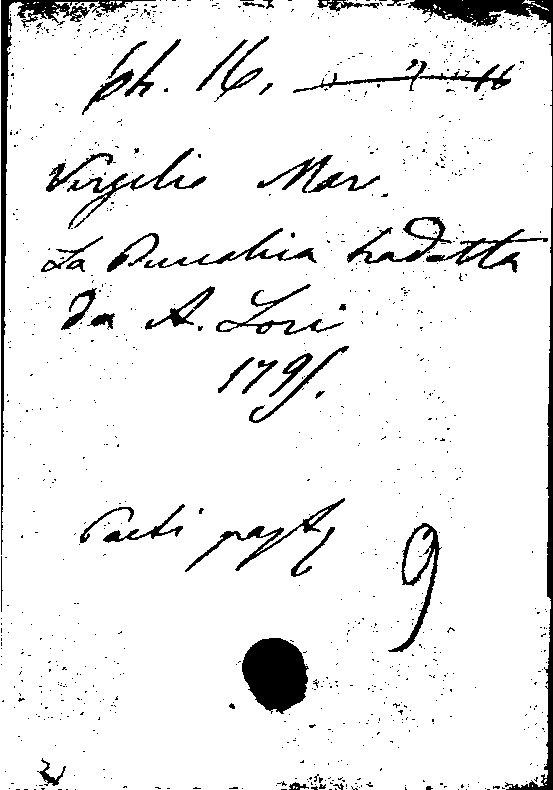 ph. 16.
Virgilio Mar.
La Buccolica tradotta
da A. Lori
1795.
Poeti
9